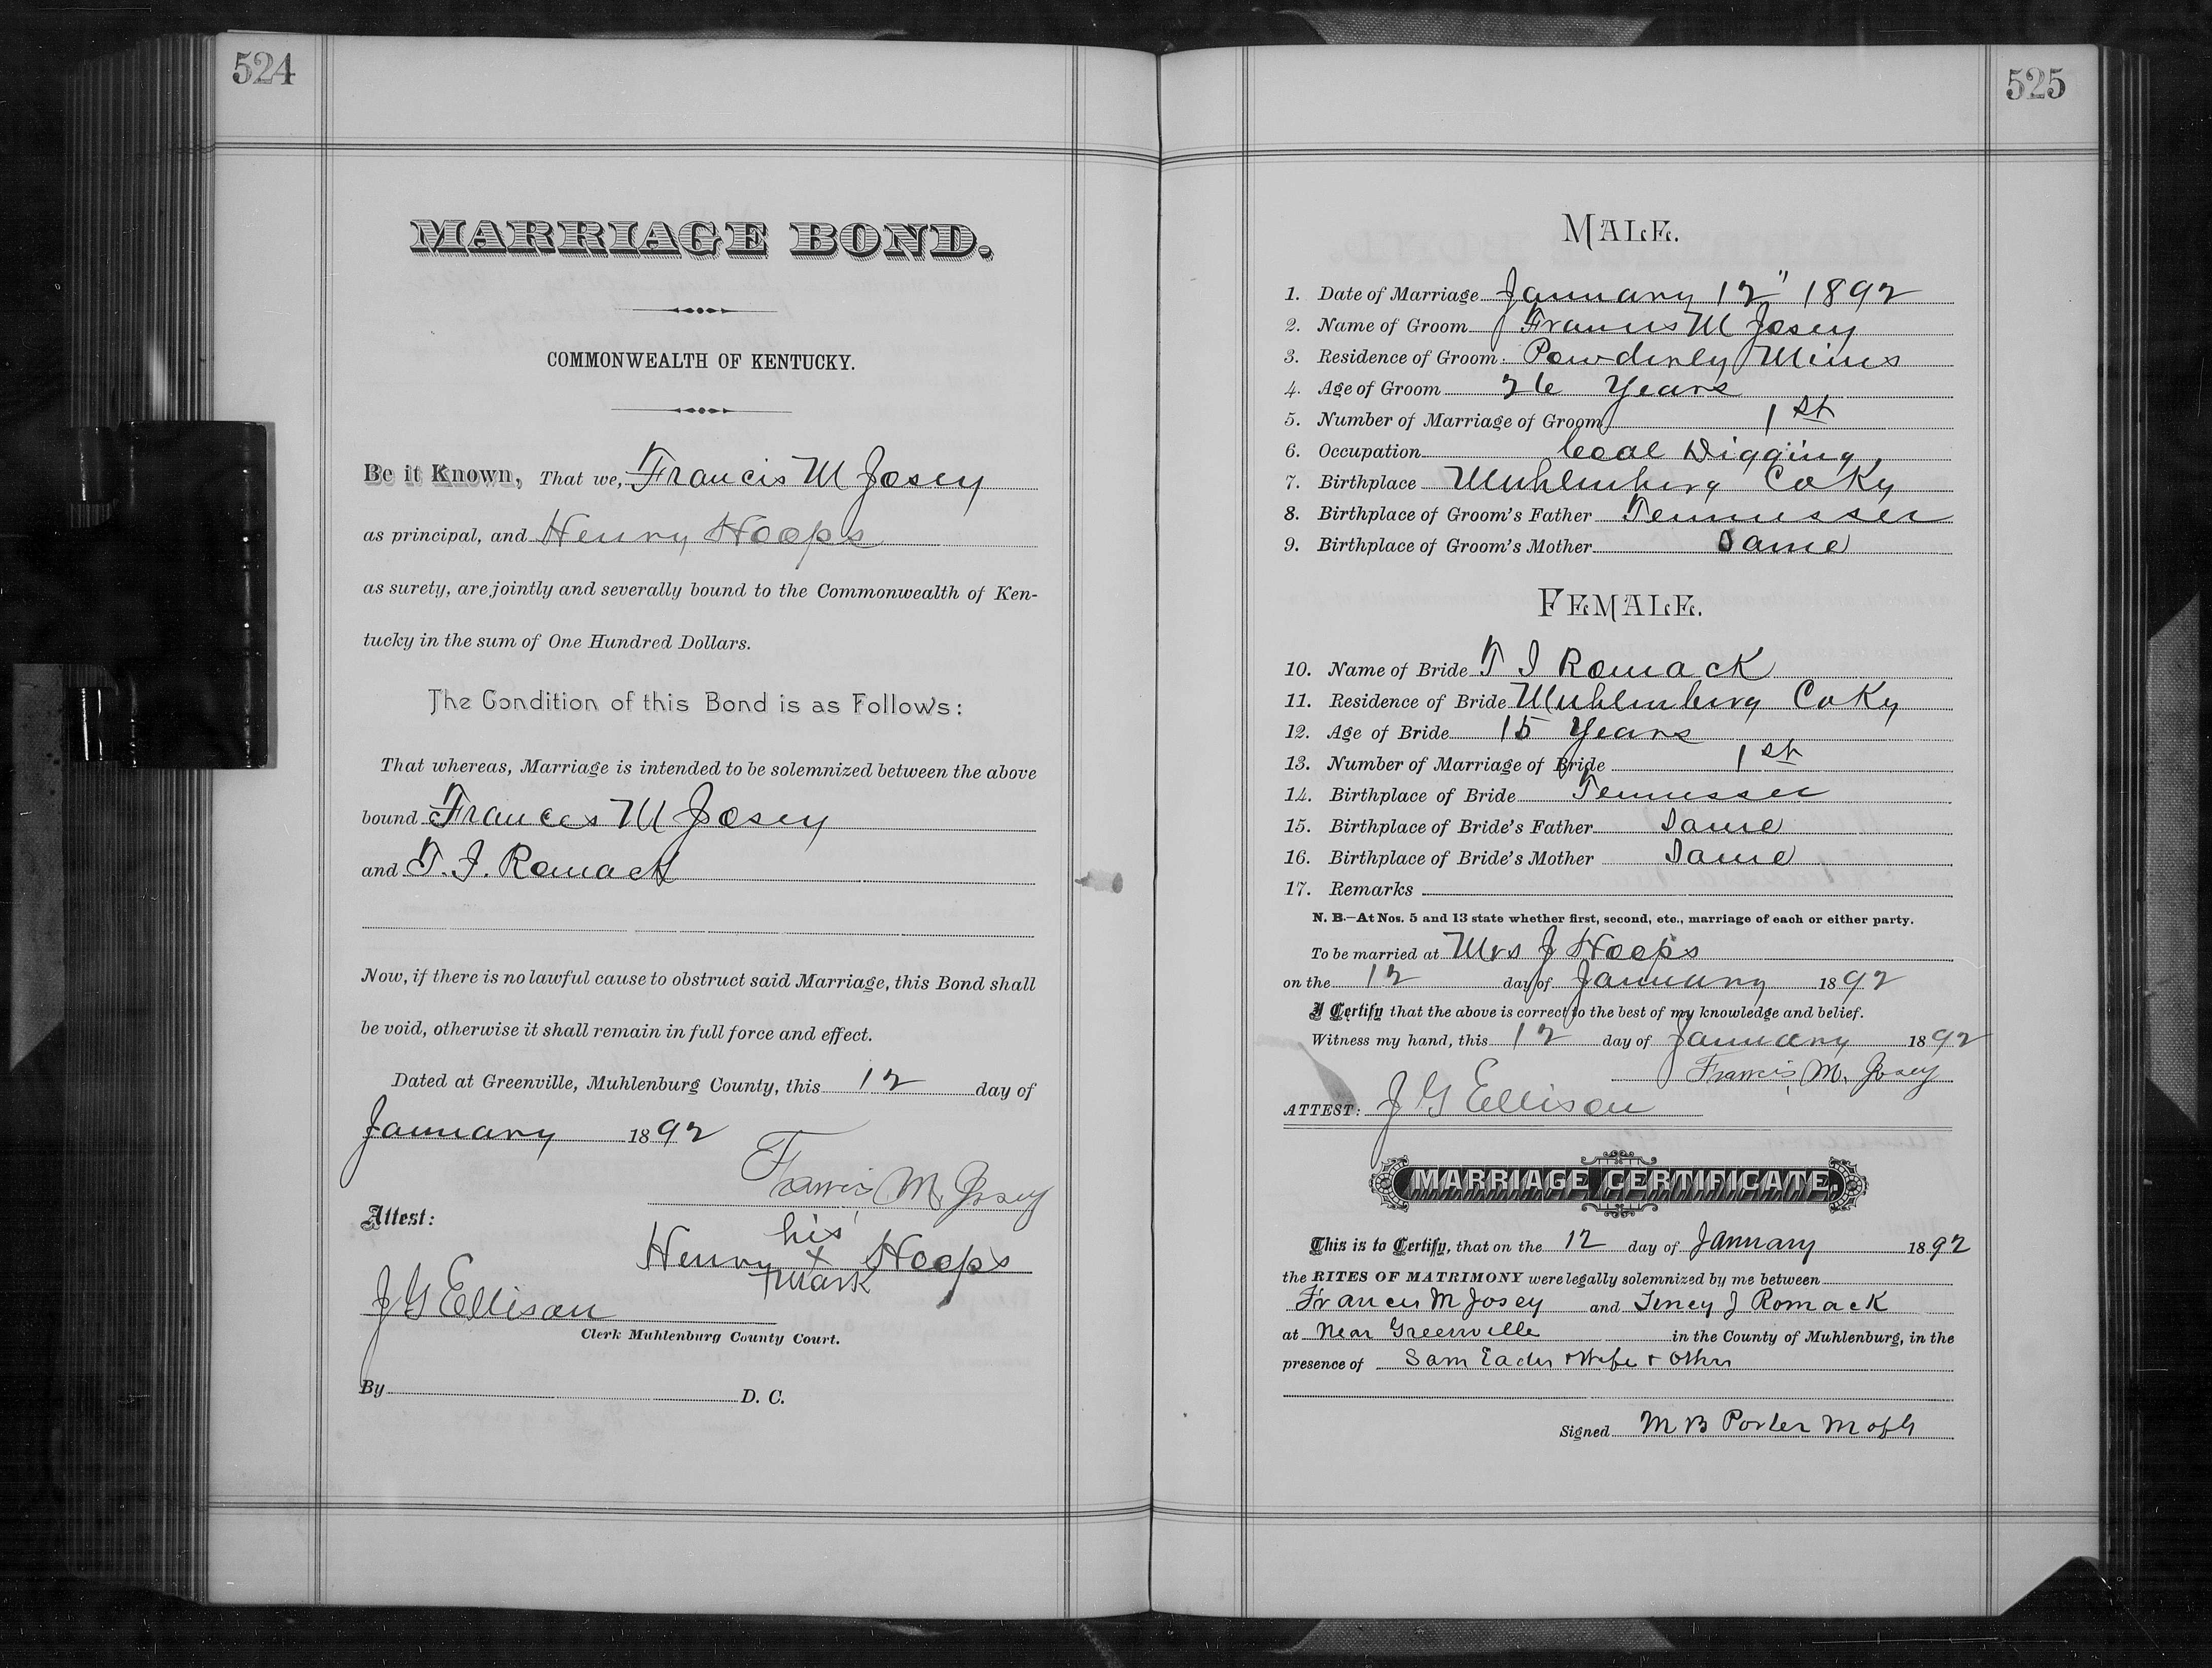 524
MARRIAGE BOND.
COMMONWEALTH OF KENTUCKY.
Be it Known, That we, Francis M Josey
as principal, and Henry Hoops
as surety, are jointly and severally bound to the Commonwealth of Ken-
tucky in the sum of One Hundred Dollars.
The Condition of this Bond is as Follows:
That whereas, Marriage is intended to be solemnized between the above
bound Frances M Josey
and T. J. Romack
Now, if there is no lawful cause to obstruct said Marriage, this Bond shall
be void, otherwise it shall remain in full force and effect.
Dated at Greenville, Muhlenburg County, this 12 day of
January 1892
Francis M. Josey
Attest:
his
Henry x Hoops
mark
J G Ellison
Clerk Muhlenburg County Court.
By D. C.
525
MALE.
1. Date of Marriage January 12" 1892
2. Name of Groom Francis M Josey
3. Residence of Groom Powderly Mines
4. Age of Groom 26 Years
5. Number of Marriage of Groom 1st
6. Occupation Coal Digging
7. Birthplace Muhlenberg Co Ky
8. Birthplace of Groom's Father Tennessee
9. Birthplace of Groom's Mother Same
FEMALE.
10. Name of Bride T J Romack
11. Residence of Bride Muhlenberg Co Ky
12. Age of Bride 15 Years
13. Number of Marriage of Bride 1st
14. Birthplace of Bride Tennessee
15. Birthplace of Bride's Father Same
16. Birthplace of Bride's Mother Same
17. Remarks
N. B.—At Nos. 5 and 13 state whether first, second, etc., marriage of each or either party.
To be married at Mrs J Hoops
on the 12 day of January 1892
I Certify that the above is correct to the best of my knowledge and belief.
Witness my hand, this 12 day of January 1892
Francis M. Josey
ATTEST: J G Ellison
MARRIAGE CERTIFICATE.
This is to Certify, that on the 12 day of January 1892
the RITES OF MATRIMONY were legally solemnized by me between
Francis M Josey and J Romack
at Near Greenville in the County of Muhlenburg, in the
presence of Sam Eades & Wife & Others
Signed M B Porter M of G